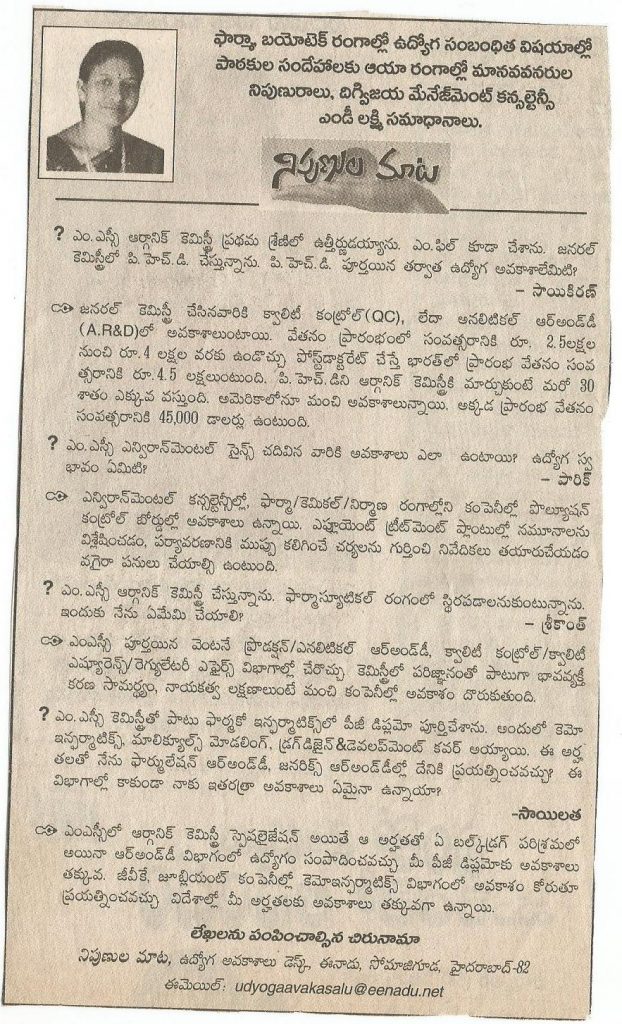 ఫార్మా, బయోటెక్ రంగాల్లో ఉద్యోగ సంబంధిత విషయాల్లో
పాఠకుల సందేహాలకు ఆయా రంగాల్లో మానవవనరుల
నిపుణురాలు, దిగ్విజయ మేనేజ్‌మెంట్ కన్సల్టెన్సీ
ఎండీ లక్ష్మి సమాధానాలు.
నిపుణుల మాట
? ఎం.ఎస్సీ ఆర్గానిక్ కెమిస్ట్రీ ప్రథమ శ్రేణిలో ఉత్తీర్ణుడయ్యాను. ఎం.ఫిల్ కూడా చేశాను. జనరల్
కెమిస్ట్రీలో పి.హెచ్.డి. చేస్తున్నాను. పి.హెచ్.డి. పూర్తయిన తర్వాత ఉద్యోగ అవకాశాలేమిటి?
– సాయికిరణ్
జనరల్ కెమిస్ట్రీ చేసినవారికి క్వాలిటీ కంట్రోల్(QC), లేదా అనలిటికల్ ఆర్అండ్‌డీ
(A.R&D)లో అవకాశాలుంటాయి. వేతనం ప్రారంభంలో సంవత్సరానికి రూ. 2.5లక్షల
నుంచి రూ.4 లక్షల వరకు ఉండొచ్చు పోస్ట్‌డాక్టరేట్ చేస్తే భారత్‌లో ప్రారంభ వేతనం సంవ
త్సరానికి రూ.4.5 లక్షలుంటుంది. పి.హెచ్.డిని ఆర్గానిక్ కెమిస్ట్రీకి మార్చుకుంటే మరో 30
శాతం ఎక్కువ వస్తుంది. అమెరికాలోనూ మంచి అవకాశాలున్నాయి. అక్కడ ప్రారంభ వేతనం
సంవత్సరానికి 45,000 డాలర్లు ఉంటుంది.
? ఎం.ఎస్సీ ఎన్విరాన్‌మెంటల్ సైన్స్ చదివిన వారికి అవకాశాలు ఎలా ఉంటాయి? ఉద్యోగ స్వ
భావం ఏమిటి?
– పారిక్
ఎన్విరాన్‌మెంటల్ కన్సల్టెన్సీల్లో, ఫార్మా/కెమికల్/నిర్మాణ రంగాల్లోని కంపెనీల్లో పొల్యూషన్
కంట్రోల్ బోర్డుల్లో అవకాశాలు ఉన్నాయి. ఎఫ్లూయెంట్ ట్రీట్‌మెంట్ ప్లాంటుల్లో నమూనాలను
విశ్లేషించడం, పర్యావరణానికి ముప్పు కలిగించే చర్యలను గుర్తించి నివేదికలు తయారుచేయడం
వగైరా పనులు చేయాల్సి ఉంటుంది.
? ఎం.ఎస్సీ ఆర్గానిక్ కెమిస్ట్రీ చేస్తున్నాను. ఫార్మాస్యూటికల్ రంగంలో స్థిరపడాలనుకుంటున్నాను.
ఇందుకు నేను ఏమేమి చేయాలి?
– శ్రీకాంత్
ఎంఎస్సీ పూర్తయిన వెంటనే ప్రొడక్షన్/ఎనలిటికల్ ఆర్అండ్‌డీ, క్వాలిటీ కంట్రోల్/క్వాలిటీ
ఎష్యూరెన్స్/రెగ్యులేటరీ ఎఫైర్స్ విభాగాల్లో చేరొచ్చు కెమిస్ట్రీలో పరిజ్ఞానంతో పాటుగా భావవ్యక్తీ
కరణ సామర్థ్యం, నాయకత్వ లక్షణాలుంటే మంచి కంపెనీల్లో అవకాశం దొరుకుతుంది.
? ఎం.ఎస్సీ కెమిస్ట్రీతో పాటు ఫార్మకో ఇన్ఫర్మాటిక్స్‌లో పీజీ డిప్లమో పూర్తిచేశాను. అందులో కెమో
ఇన్ఫర్మాటిక్స్, మాలిక్యూల్స్ మోడలింగ్, డ్రగ్‌డిజైన్&డెవలప్‌మెంట్ కవర్ అయ్యాయి. ఈ అర్హ
తలతో నేను ఫార్ములేషన్ ఆర్అండ్‌డీ, జనరిక్స్ ఆర్అండ్‌డీల్లో దేనికి ప్రయత్నించవచ్చు? ఈ
విభాగాల్లో కాకుండా నాకు ఇతరత్రా అవకాశాలు ఏమైనా ఉన్నాయా?
-సాయిలత
ఎంఎస్సీలో ఆర్గానిక్ కెమిస్ట్రీ స్పెషలైజేషన్ అయితే ఆ అర్హతతో ఏ బల్క్‌డ్రగ్ పరిశ్రమలో
అయినా ఆర్అండ్‌డీ విభాగంలో ఉద్యోగం సంపాదించవచ్చు మీ పీజీ డిప్లమోకు అవకాశాలు
తక్కువ. జీవీకే, జూబ్లియంట్ కంపెనీల్లో కెమోఇన్ఫర్మాటిక్స్ విభాగంలో అవకాశం కోరుతూ
ప్రయత్నించవచ్చు విదేశాల్లో మీ అర్హతలకు అవకాశాలు తక్కువగా ఉన్నాయి.
లేఖలను పంపించాల్సిన చిరునామా
నిపుణుల మాట, ఉద్యోగ అవకాశాలు డెస్క్, ఈనాడు, సోమాజిగూడ, హైదరాబాద్-82
ఈమెయిల్: udyogaavakasalu@eenadu.net